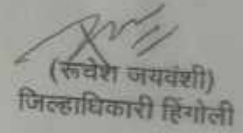 (रूचेश जयवंशी)
जिल्हाधिकारी हिंगोली